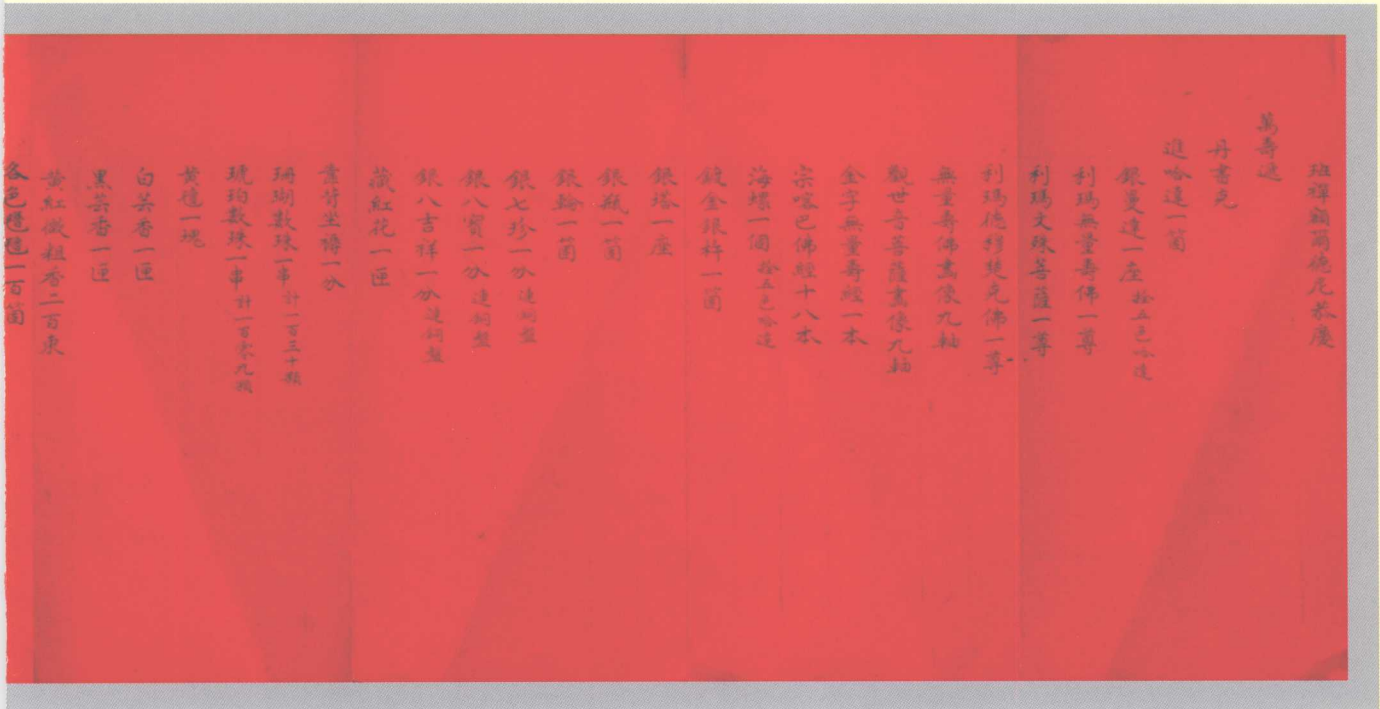 班禪額爾德尼恭慶
萬壽遞
丹書克
進哈達一箇
銀曼達一座 拴五色哈達
利瑪無量壽佛一尊
利瑪文殊菩薩一尊
利瑪德穆楚克佛一尊
無量壽佛畫像九軸
觀世音菩薩畫像九軸
金字無量壽經一本
宗喀巴佛經十八本
海螺一個 拴五色哈達
鍍金銀杵一箇
銀塔一座
銀瓶一箇
銀輪一箇
銀七珍一分 連銅盤
銀八寶一分 連銅盤
銀八吉祥一分 連銅盤
藏紅花一匣
靠背坐褥一分
珊瑚數珠一串 計一百三十顆
琥珀數珠一串 計一百零九顆
黃檀一塊
白芸香一匣
黑芸香一匣
黃紅微粗香二百束
各色氆氌一百箇